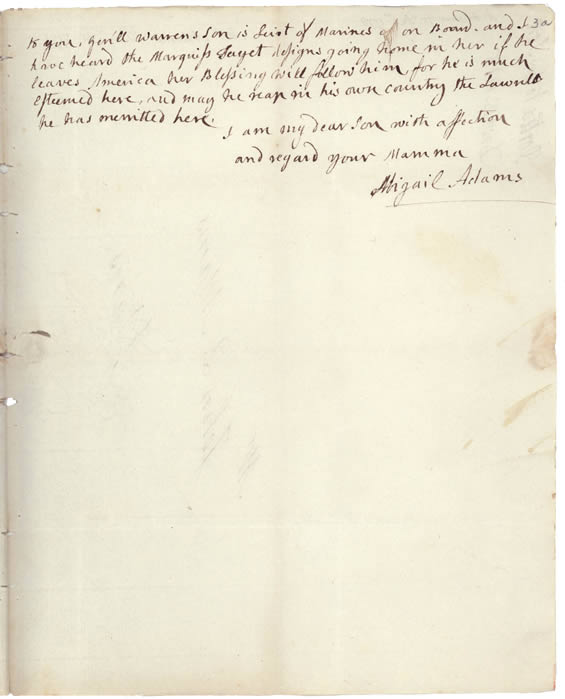 to you, Genll Warrens son is Leiut of Marines on Board. and I
have heard the Marquiss Fayet designs going home in her if he
leaves America her Blessing will follow him for he is much
Esteemed here, and may he reap in his own country the Lawrels
he has merritted here.
I am my dear son with affection
and regard your Mamma
Abigail Adams